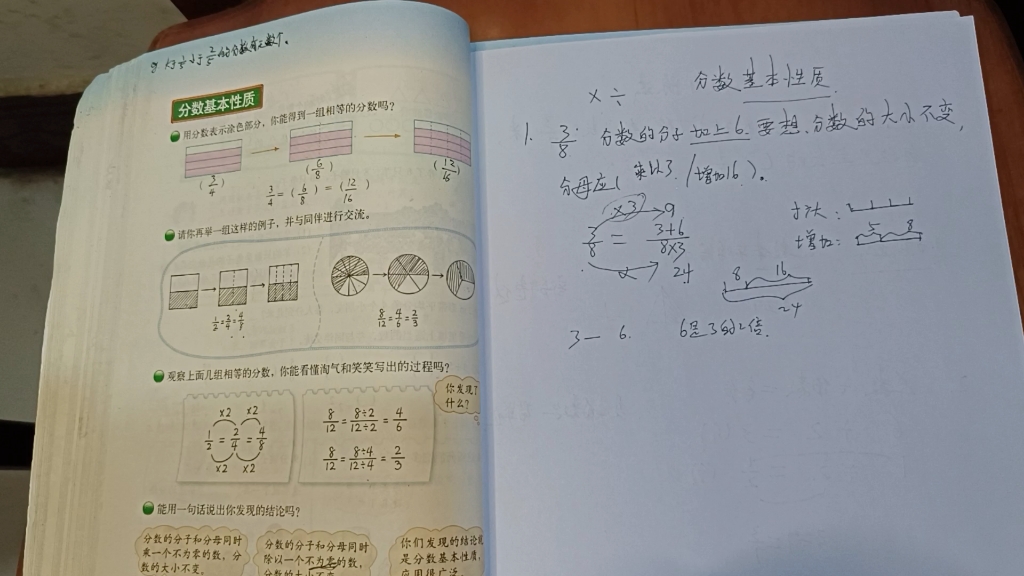 分数基本性质
用分数表示涂色部分，你能得到一组相等的分数吗？
(3/4) (6/8) (12/16)
3/4 = (6/8) = (12/16)
请你再举一组这样的例子，并与同伴进行交流。
1/2 = 2/4 = 4/8
8/12 = 4/6 = 2/3
观察上面几组相等的分数，你能看懂淘气和笑笑写出的过程吗？
你发现了
什么？
×2 ×2
1/2 = 2/4 = 4/8
×2 ×2
8/12 = 8÷2/12÷2 = 4/6
8/12 = 8÷4/12÷4 = 2/3
能用一句话说出你发现的结论吗？
分数的分子和分母同时
乘一个不为零的数，分
数的大小不变。
分数的分子和分母同时
除以一个不为零的数，
分数的大小不变
你们发现的结论
是分数基本性质，
应用很广泛
× ÷
分数基本性质
1. 3/8 分数的分子加上6.要想分数的大小不变，
分母应( 乘以3 /增加16 )。
×3 9
3/8 = 3+6/8×3
24
增加: 5 8
8 16
24
3— 6. 6是3的2倍.